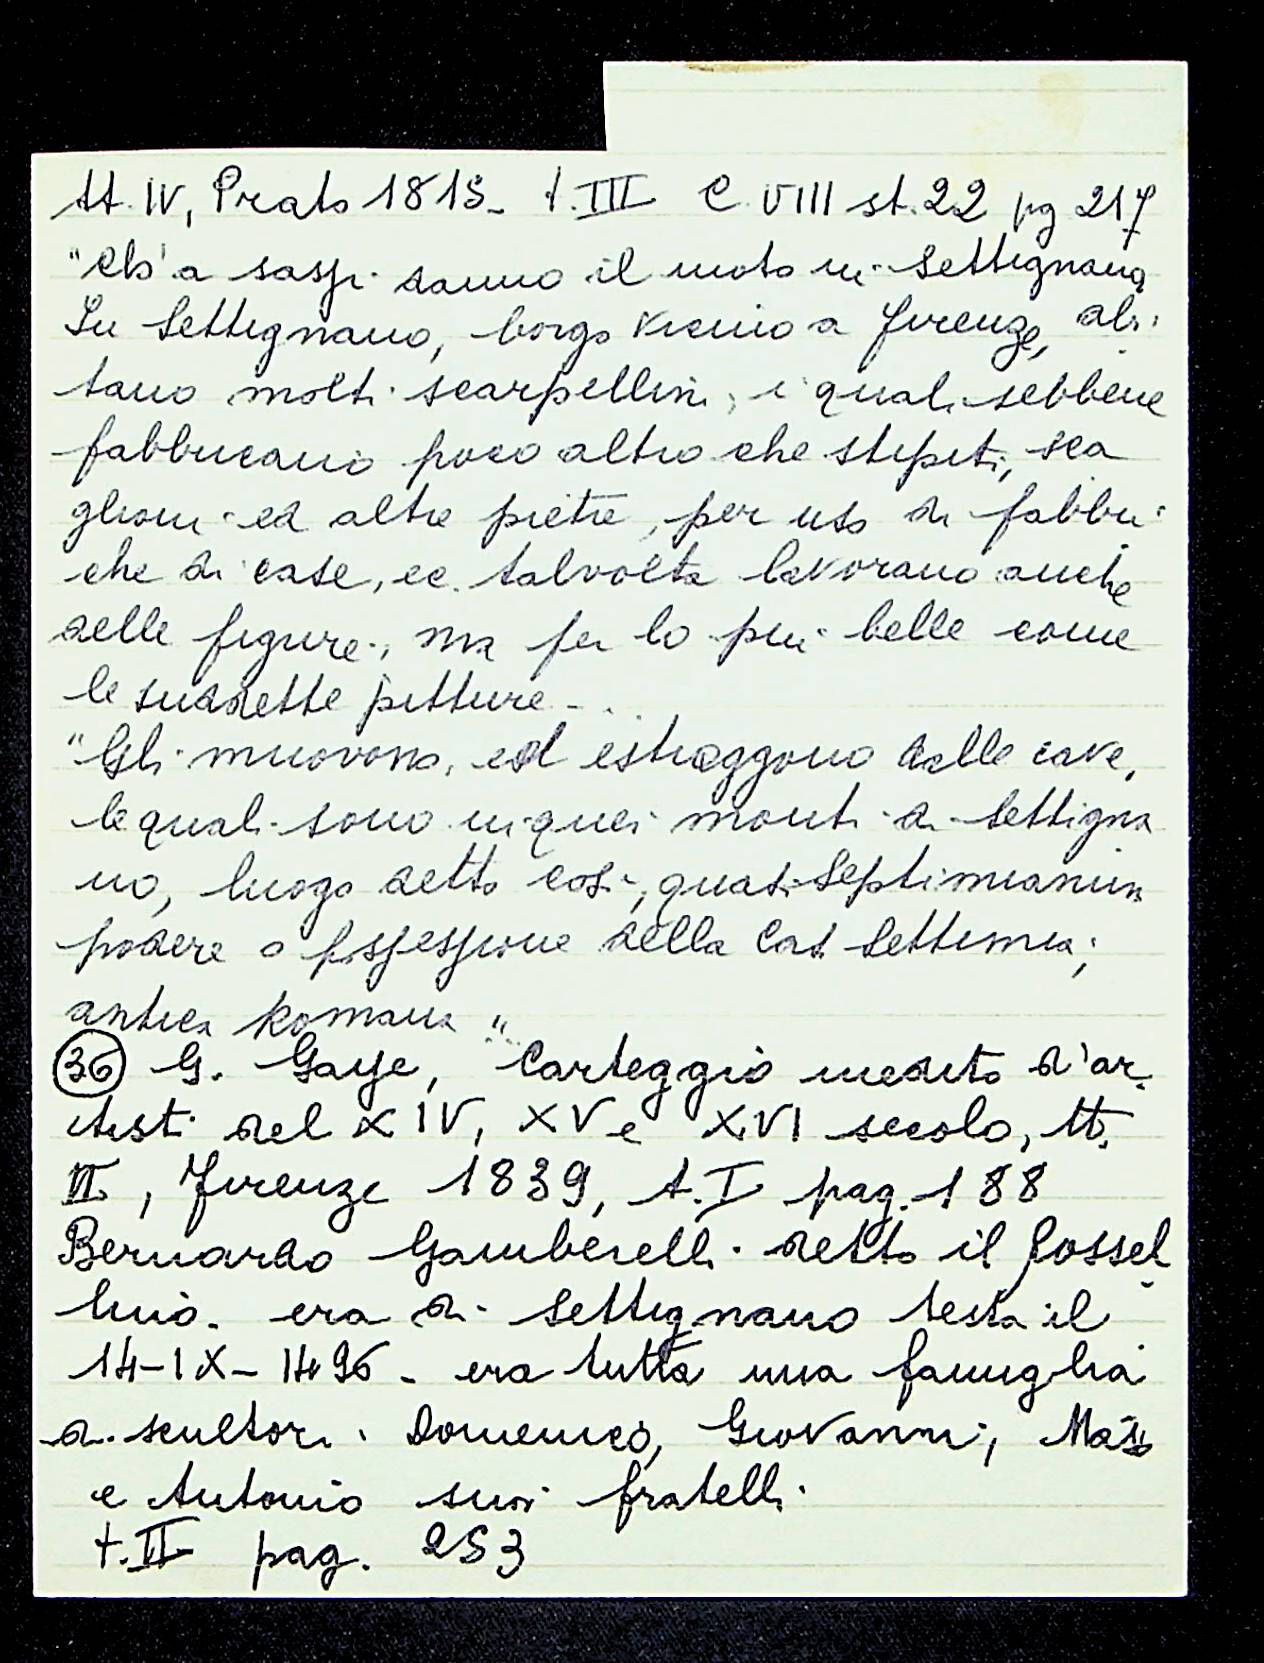 tt. IV, Prato 1815 - t. III C. VIII st. 22 pg 217
"Ch'a sassi danno il moto in Settignano
In Settignano, borgo vicino a Firenze, abi
tano molti scarpellini, i quali sebbene
fabbricano poco altro che stipiti, sca
glioni ed altre pietre, per uso di fabbri
che di case, ec. talvolta lavorano anche
delle figure, ma per lo più belle come
le suddette pitture -
"Gli muovono, ed estraggono dalle cave,
le quali sono in quei monti di Settigna
no, luogo detto così, quasi Septimianum
podere o possessione della Casa Settimia,
antica Romana"
36 G. Gaye, Carteggio inedito d'ar-
tisti del XIV, XV e XVI secolo, tt.
III, Firenze 1839, t. I pag. 188
Bernardo Gamberelli detto il Rossel
lino. era di Settignano testa il
14-IX-1496 - era tutta una famiglia
di scultori: Domenico, Giovanni, Maso
e Antonio suoi fratelli.
t. II pag. 253